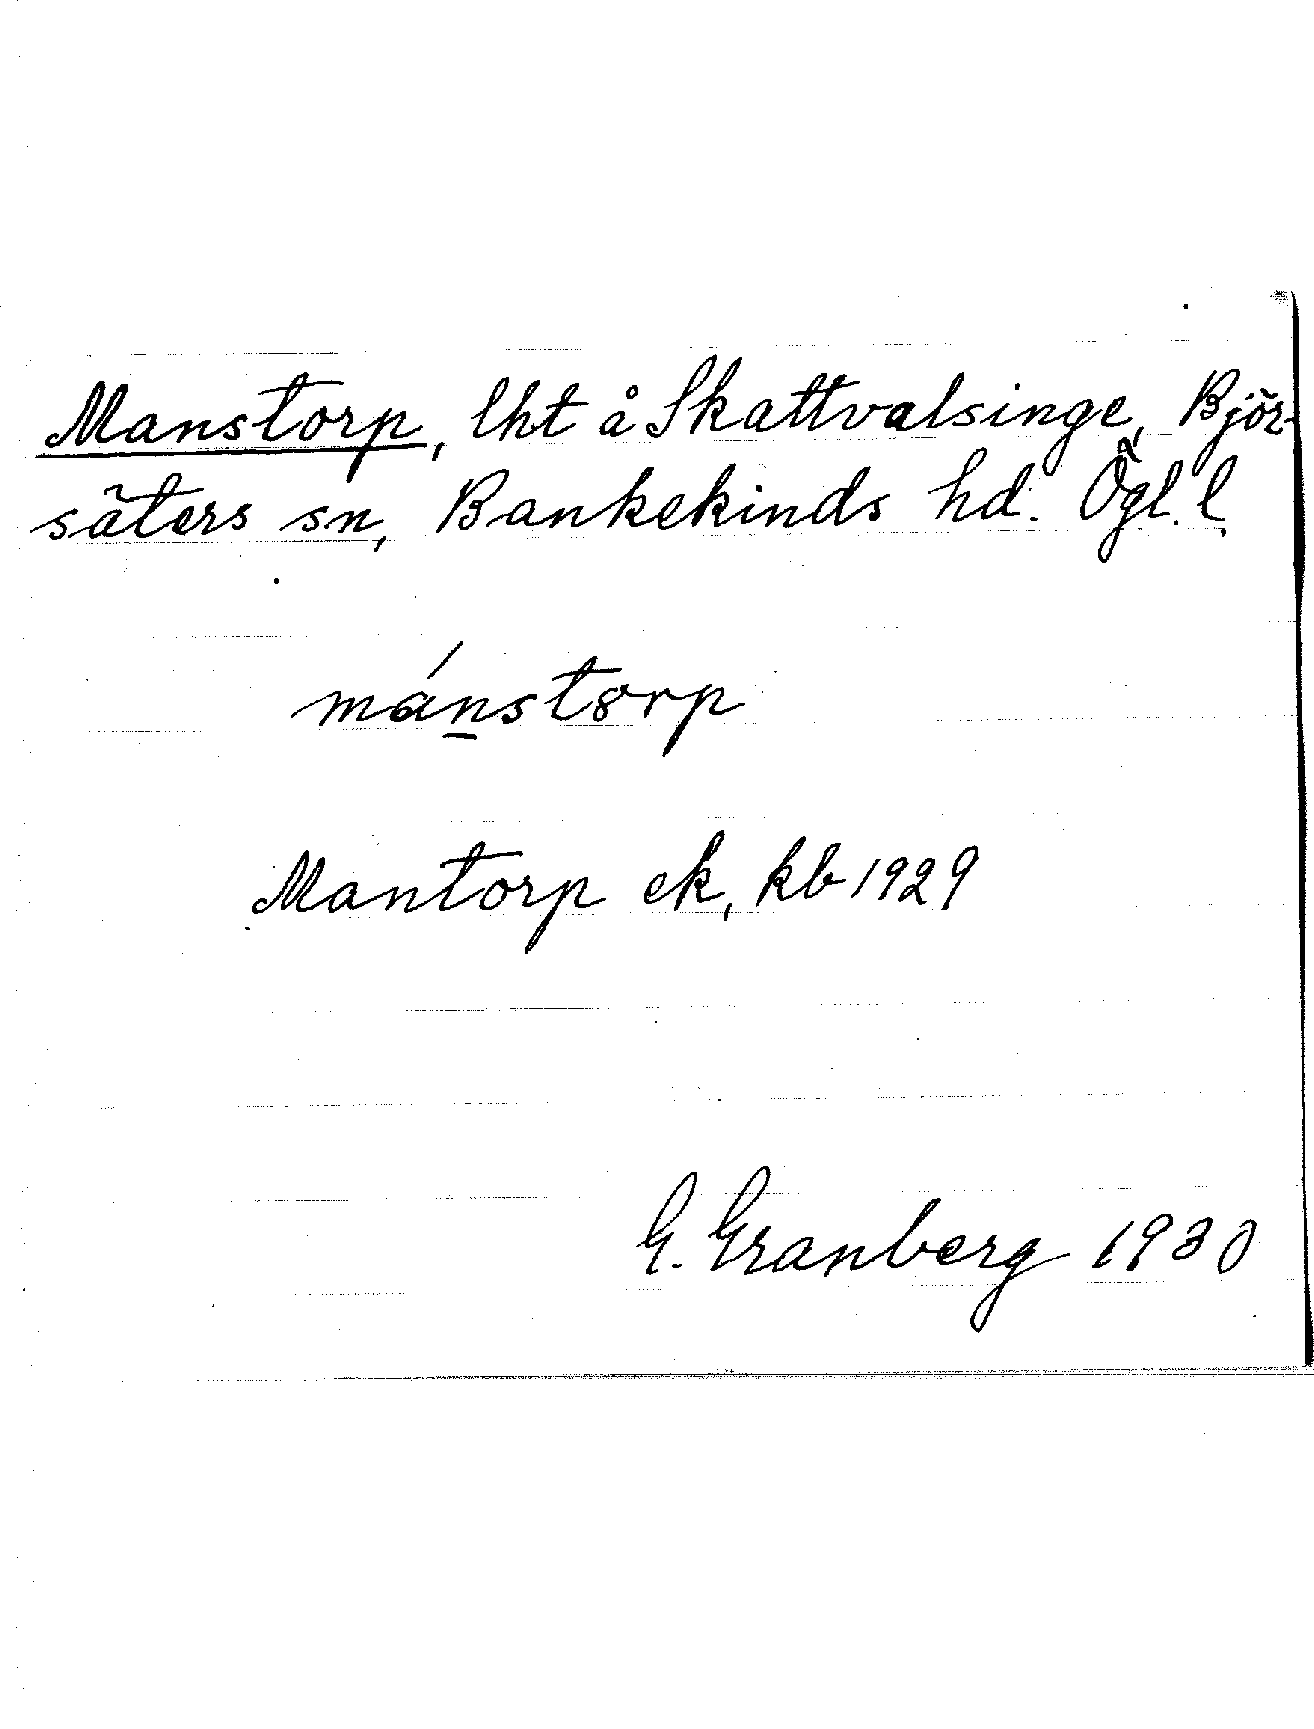 Manstorp, lht å Skattvalsinge, Björ-
säters sn, Bankekinds hd. Ögl. l.
mánstɷrp
Mantorp ek, kb 1929
G. Granberg 1930